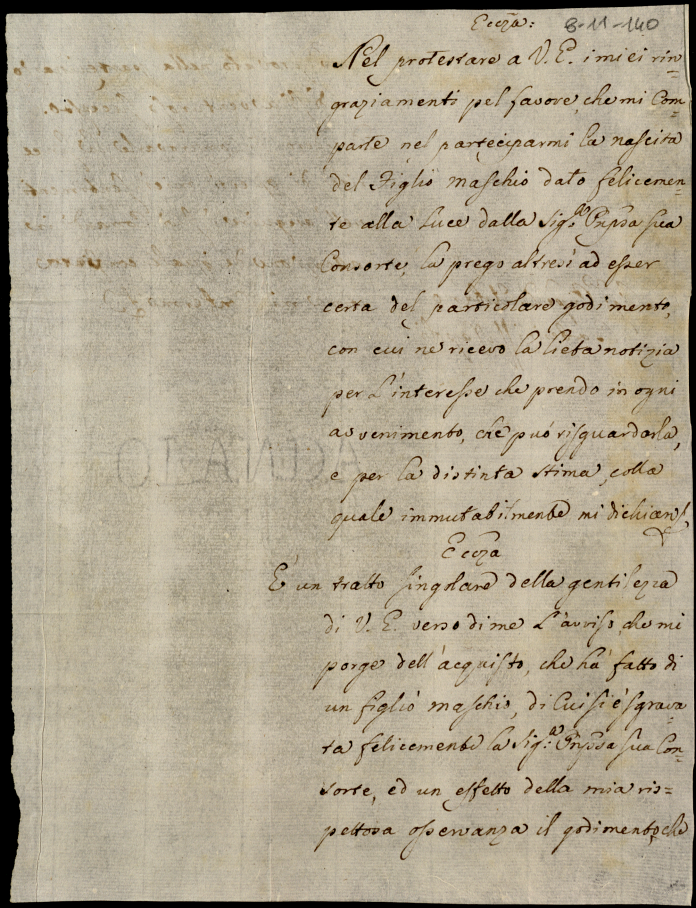 Eccza: 8-11-140
Nel protestare a V. E. i miei rin=
graziamenti pel favore, che mi Com=
parte nel parteciparmi la nascita
del Figlio maschio dato felicemen=
te alla Luce dalla Sig.ra Pnpssa sua
Consorte, la prego altresì ad esser
certa del particolare godimento,
con cui ne ricevo la lieta notizia
per l'interesse che prendo in ogni
avvenimento, che può risguardarla,
e per la distinta stima, colla
quale immutabilmente mi dichiaro
Eccza
E' un tratto singolare della gentilezza
di V. E. verso di me l'avviso, che mi
porge dell'acquisto, che ha fatto di
un figlio maschio, di Cui si è sgrava=
ta felicemente la Sig.ra Pnpssa sua Con=
sorte, ed un effetto della mia ris=
pettosa osservanza il godimento, che